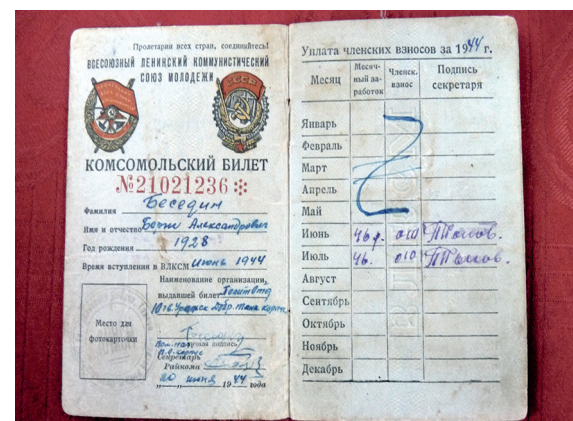 Пролетарии всех стран, соединяйтесь!
ВСЕСОЮЗНЫЙ ЛЕНИНСКИЙ КОММУНИСТИЧЕСКИЙ
СОЮЗ МОЛОДЕЖИ
КОМСОМОЛЬСКИЙ БИЛЕТ
№21021236
Фамилия Беседин
Имя и отчество Александрович
Год рождения 1928
Время вступления в ВЛКСМ Июнь 1944
Наименование организации,
выдавшей билет ПолитОтд
10 гв. Уральск Добр. танк корп.
Место для
фотокарточки
подпись
Секретарь
Райкома
20 июня 1944 года
Уплата членских взносов за 1944 г.
Месяц
Месяч-
ный за-
работок
Членск.
взнос
Подпись
секретаря
Январь
Февраль
Март
Апрель
Май
Июнь
Июль
Август
Сентябрь
Октябрь
Ноябрь
Декабрь